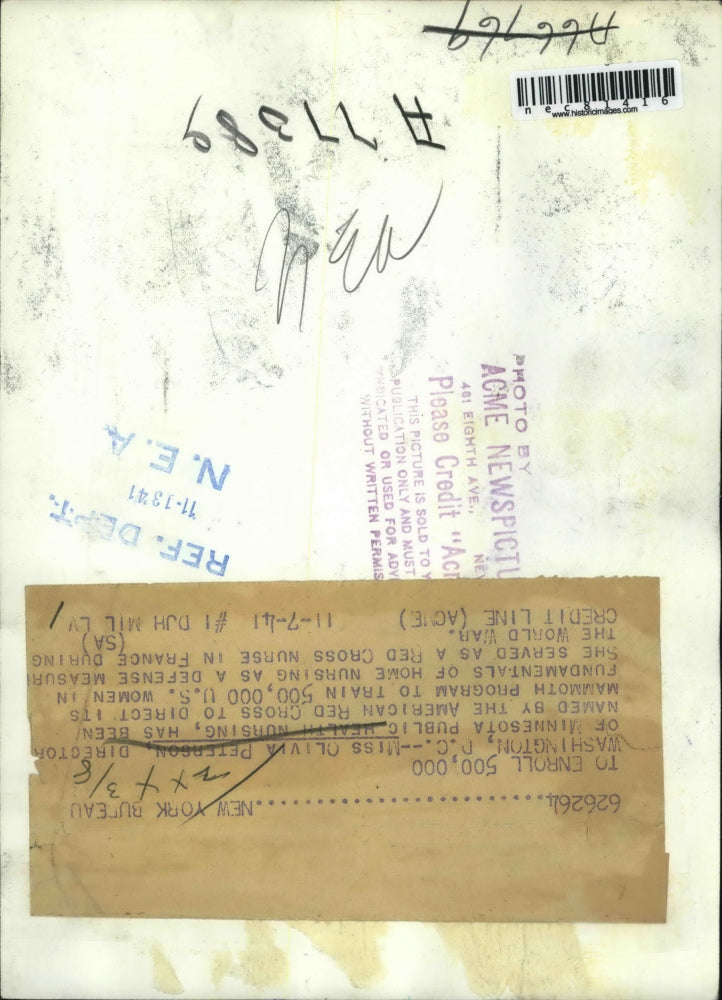 nec81416
www.historicimages.com
NEA
PHOTO BY
ACME NEWSPICTU
461 EIGHTH AVE., NEW
Please Credit "Acm
THIS PICTURE IS SOLD TO Y
PUBLICATION ONLY AND MUST
INDICATED OR USED FOR ADV
WITHOUT WRITTEN PERMIS
REF. DEPT.
11-1341
N.E.A.
626264....................NEW YORK BUREAU
3 x 4 3/8
TO ENROLL 500,000
WASHINGTON, D.C.--MISS OLIVIA PETERSON, DIRECTOR
OF MINNESOTA PUBLIC HEALTH NURSING, HAS BEEN
NAMED BY THE AMERICAN RED CROSS TO DIRECT ITS
MAMMOTH PROGRAM TO TRAIN 500,000 U.S. WOMEN IN
FUNDAMENTALS OF HOME NURSING AS A DEFENSE MEASURE
SHE SERVED AS A RED CROSS NURSE IN FRANCE DURING
THE WORLD WAR. (SA)
CREDIT LINE (ACME) 11-7-41 #1 DJH MIL LV